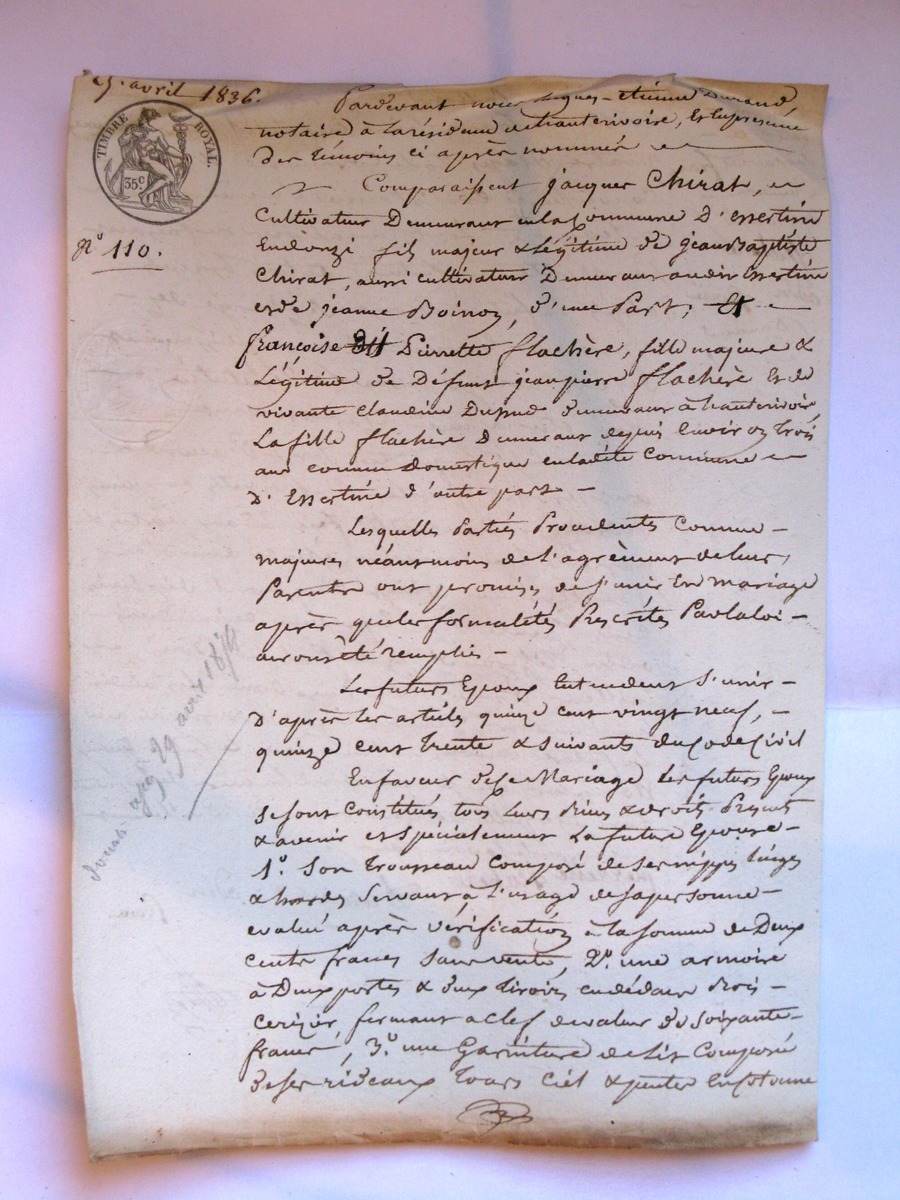 avril 1836.
Pardevant nous Eugues - etienne Durand,
notaire à la résidence de hauterivoire, Et En présence
des témoins ci après nommés
TIMBRE ROYAL.
35c
Comparaissent jacques Chirat,
Cultivateur Demeurant en la Commune D'essertine
N° 110.
Endonzi fils majeur & Légitime de jean Baptiste
Chirat, aussi cultivateur Demeurant audit Essertine
et de jeanne Boinon, d'une Part; Et
françoise dit Pierrette flachère, fille majeure &
Légitime de Défunt jean pierre flachère Et de
vivante Claudine Dupuid demeurant à hauterivoire
La fille flachère Demeurant depuis Environ trois
ans comme domestique en ladite Commune
D'Essertine d'autre part -
Lesquelles Parties Procédentes Comme -
majeures néantmoins de l'agrément de leurs
Parents ont promises de s'unir En mariage
après que les formalités Prescrites Par la loi -
auront été remplies -
Les futurs Epoux Entendent s'unir -
D'après les articles quinze cent vingt neuf, -
quinze cent trente & suivants du Code Civil
En faveur de ce Mariage les futurs Epoux
se sont Constitués tous Leurs Biens & droits Présents
& avenir et spécialement La future Epouse -
1° Son trousseau Composé de ses nippes linges
& hardes Servant à l'usage de sa personne -
évalué après vérification à la somme de Deux
cents francs sans vente, 2° une armoire
à Deux portes & deux tiroirs en dedans Bois -
Cerizier, fermant à clef de valeur de soixante -
francs, 3° une Garniture de Lit Composée
de ses rideaux tours Ciel & pentes En Cotonne
29 avril 1836